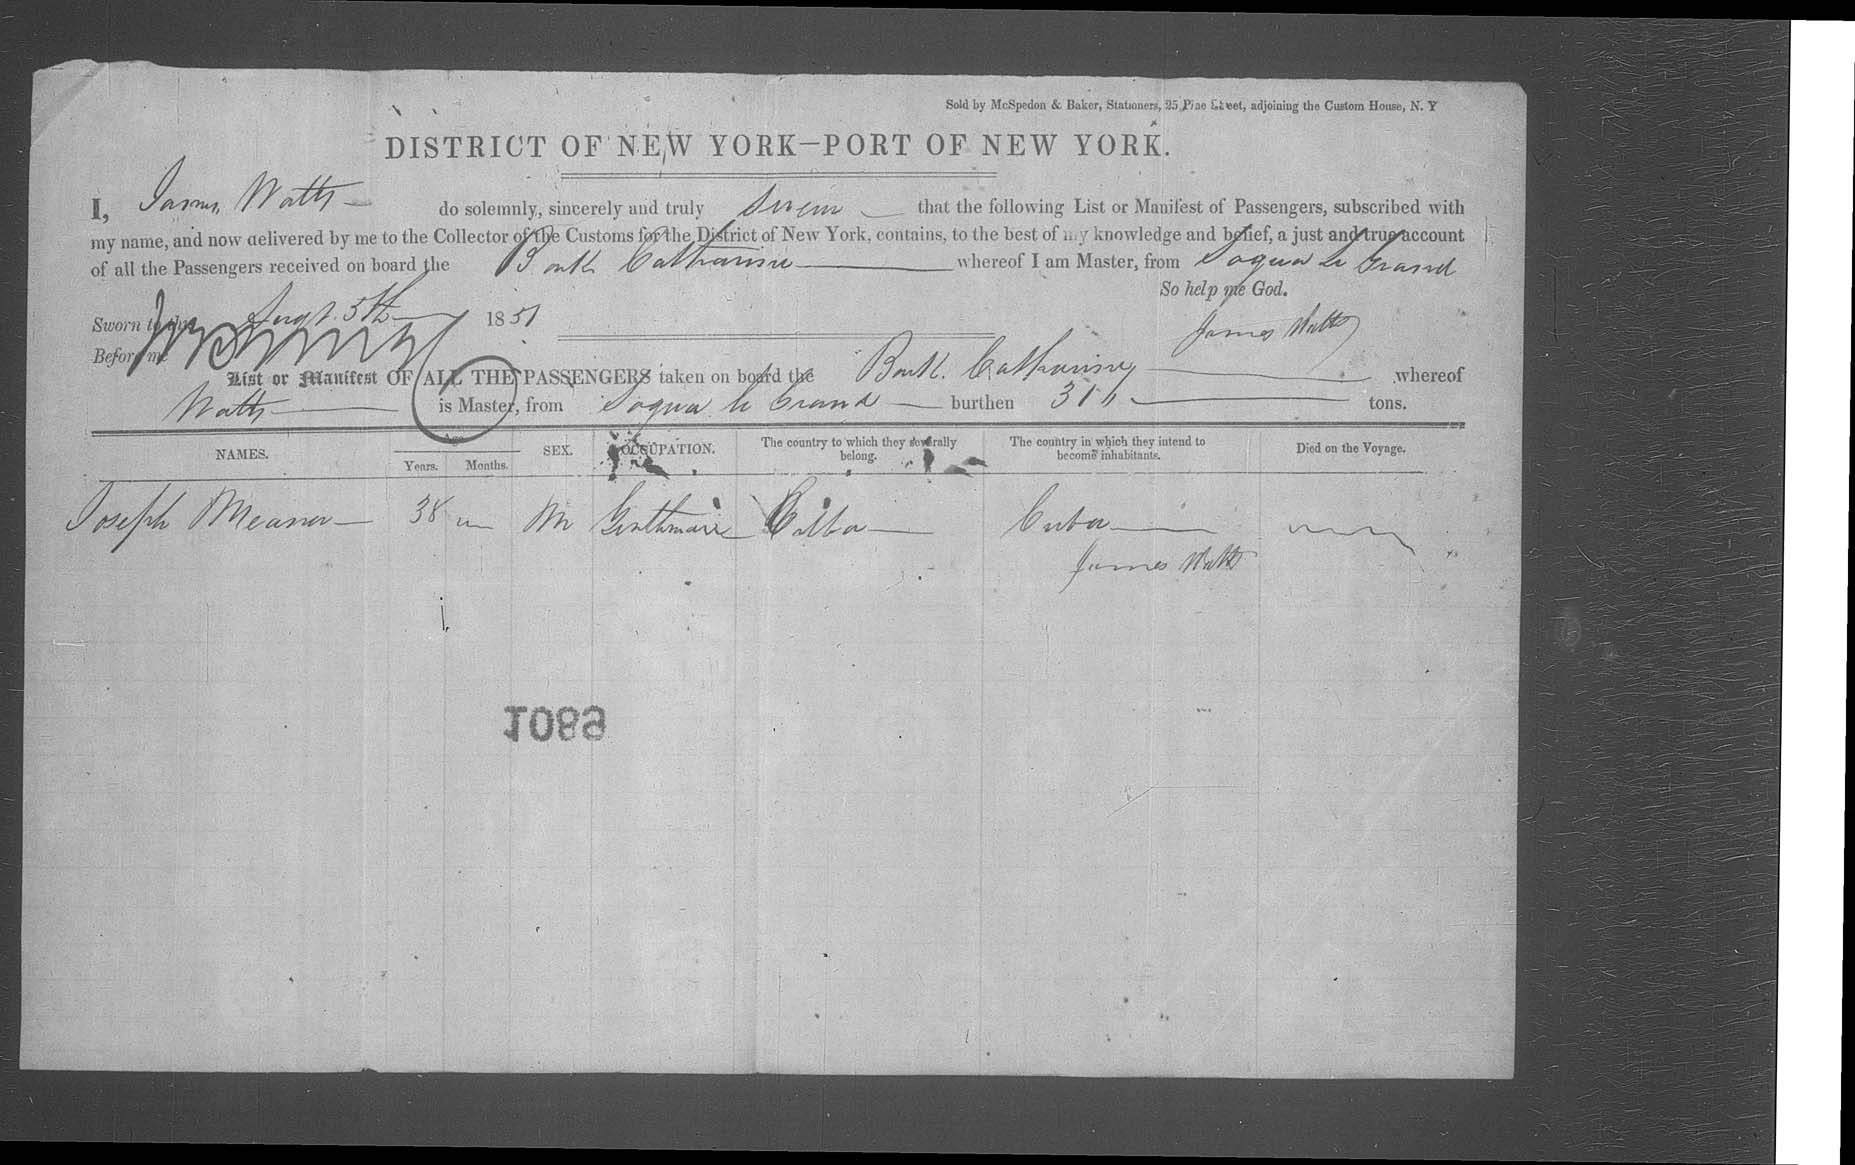 Sold by McSpedon & Baker, Stationers, 25 Pine Street, adjoining the Custom House, N. Y
DISTRICT OF NEW YORK—PORT OF NEW YORK.
I, James Watts do solemnly, sincerely and truly swear that the following List or Manifest of Passengers, subscribed with
my name, and now delivered by me to the Collector of the Customs for the District of New York, contains, to the best of my knowledge and belief, a just and true account
of all the Passengers received on board the Bark Catharine whereof I am Master, from Sagua la Grand
So help me God.
Sworn to this Augt 5th 1851
James Watts
Before me
List or Manifest OF ALL THE PASSENGERS taken on board the Bark. Catharine whereof
Watts is Master, from Sagua la Grand burthen 311 tons.
NAMES. Age Years. Months. SEX. OCCUPATION. The country to which they severally belong. The country in which they intend to become inhabitants. Died on the Voyage.
Joseph Meaner 38 M Cuba Cuba
James Watts
1089